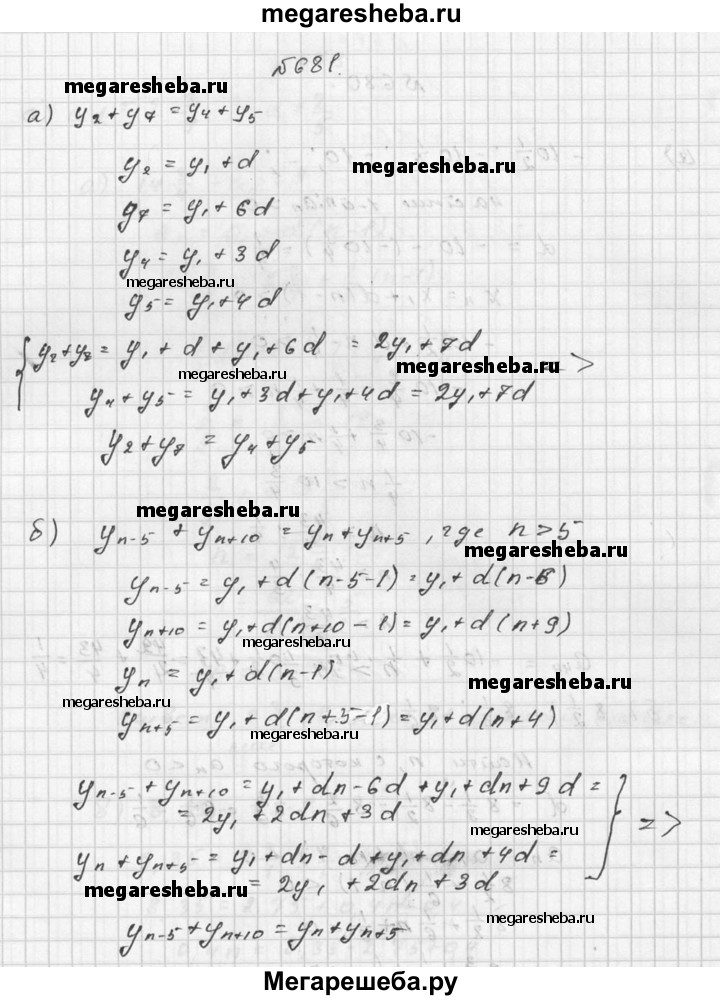 megaresheba.ru
№681.
megaresheba.ru
а) y₂ + y₇ = y₄ + y₅
y₂ = y₁ + d
megaresheba.ru
y₇ = y₁ + 6d
y₄ = y₁ + 3d
megaresheba.ru
y₅ = y₁ + 4d
{ y₂ + y₇ = y₁ + d + y₁ + 6d = 2y₁ + 7d
megaresheba.ru megaresheba.ru =>
y₄ + y₅ = y₁ + 3d + y₁ + 4d = 2y₁ + 7d
y₂ + y₇ = y₄ + y₅
megaresheba.ru
б) yₙ₋₅ + yₙ₊₁₀ = yₙ + yₙ₊₅, где n > 5
megaresheba.ru
yₙ₋₅ = y₁ + d(n-5-1) = y₁ + d(n-6)
yₙ₊₁₀ = y₁ + d(n+10-1) = y₁ + d(n+9)
megaresheba.ru
yₙ = y₁ + d(n-1)
megaresheba.ru
megaresheba.ru
yₙ₊₅ = y₁ + d(n+5-1) = y₁ + d(n+4)
yₙ₋₅ + yₙ₊₁₀ = y₁ + dn - 6d + y₁ + dn + 9d =
= 2y₁ + 2dn + 3d
megaresheba.ru } =>
yₙ + yₙ₊₅ = y₁ + dn - d + y₁ + dn + 4d =
megaresheba.ru
= 2y₁ + 2dn + 3d
megaresheba.ru
yₙ₋₅ + yₙ₊₁₀ = yₙ + yₙ₊₅
Мегарешеба.ру